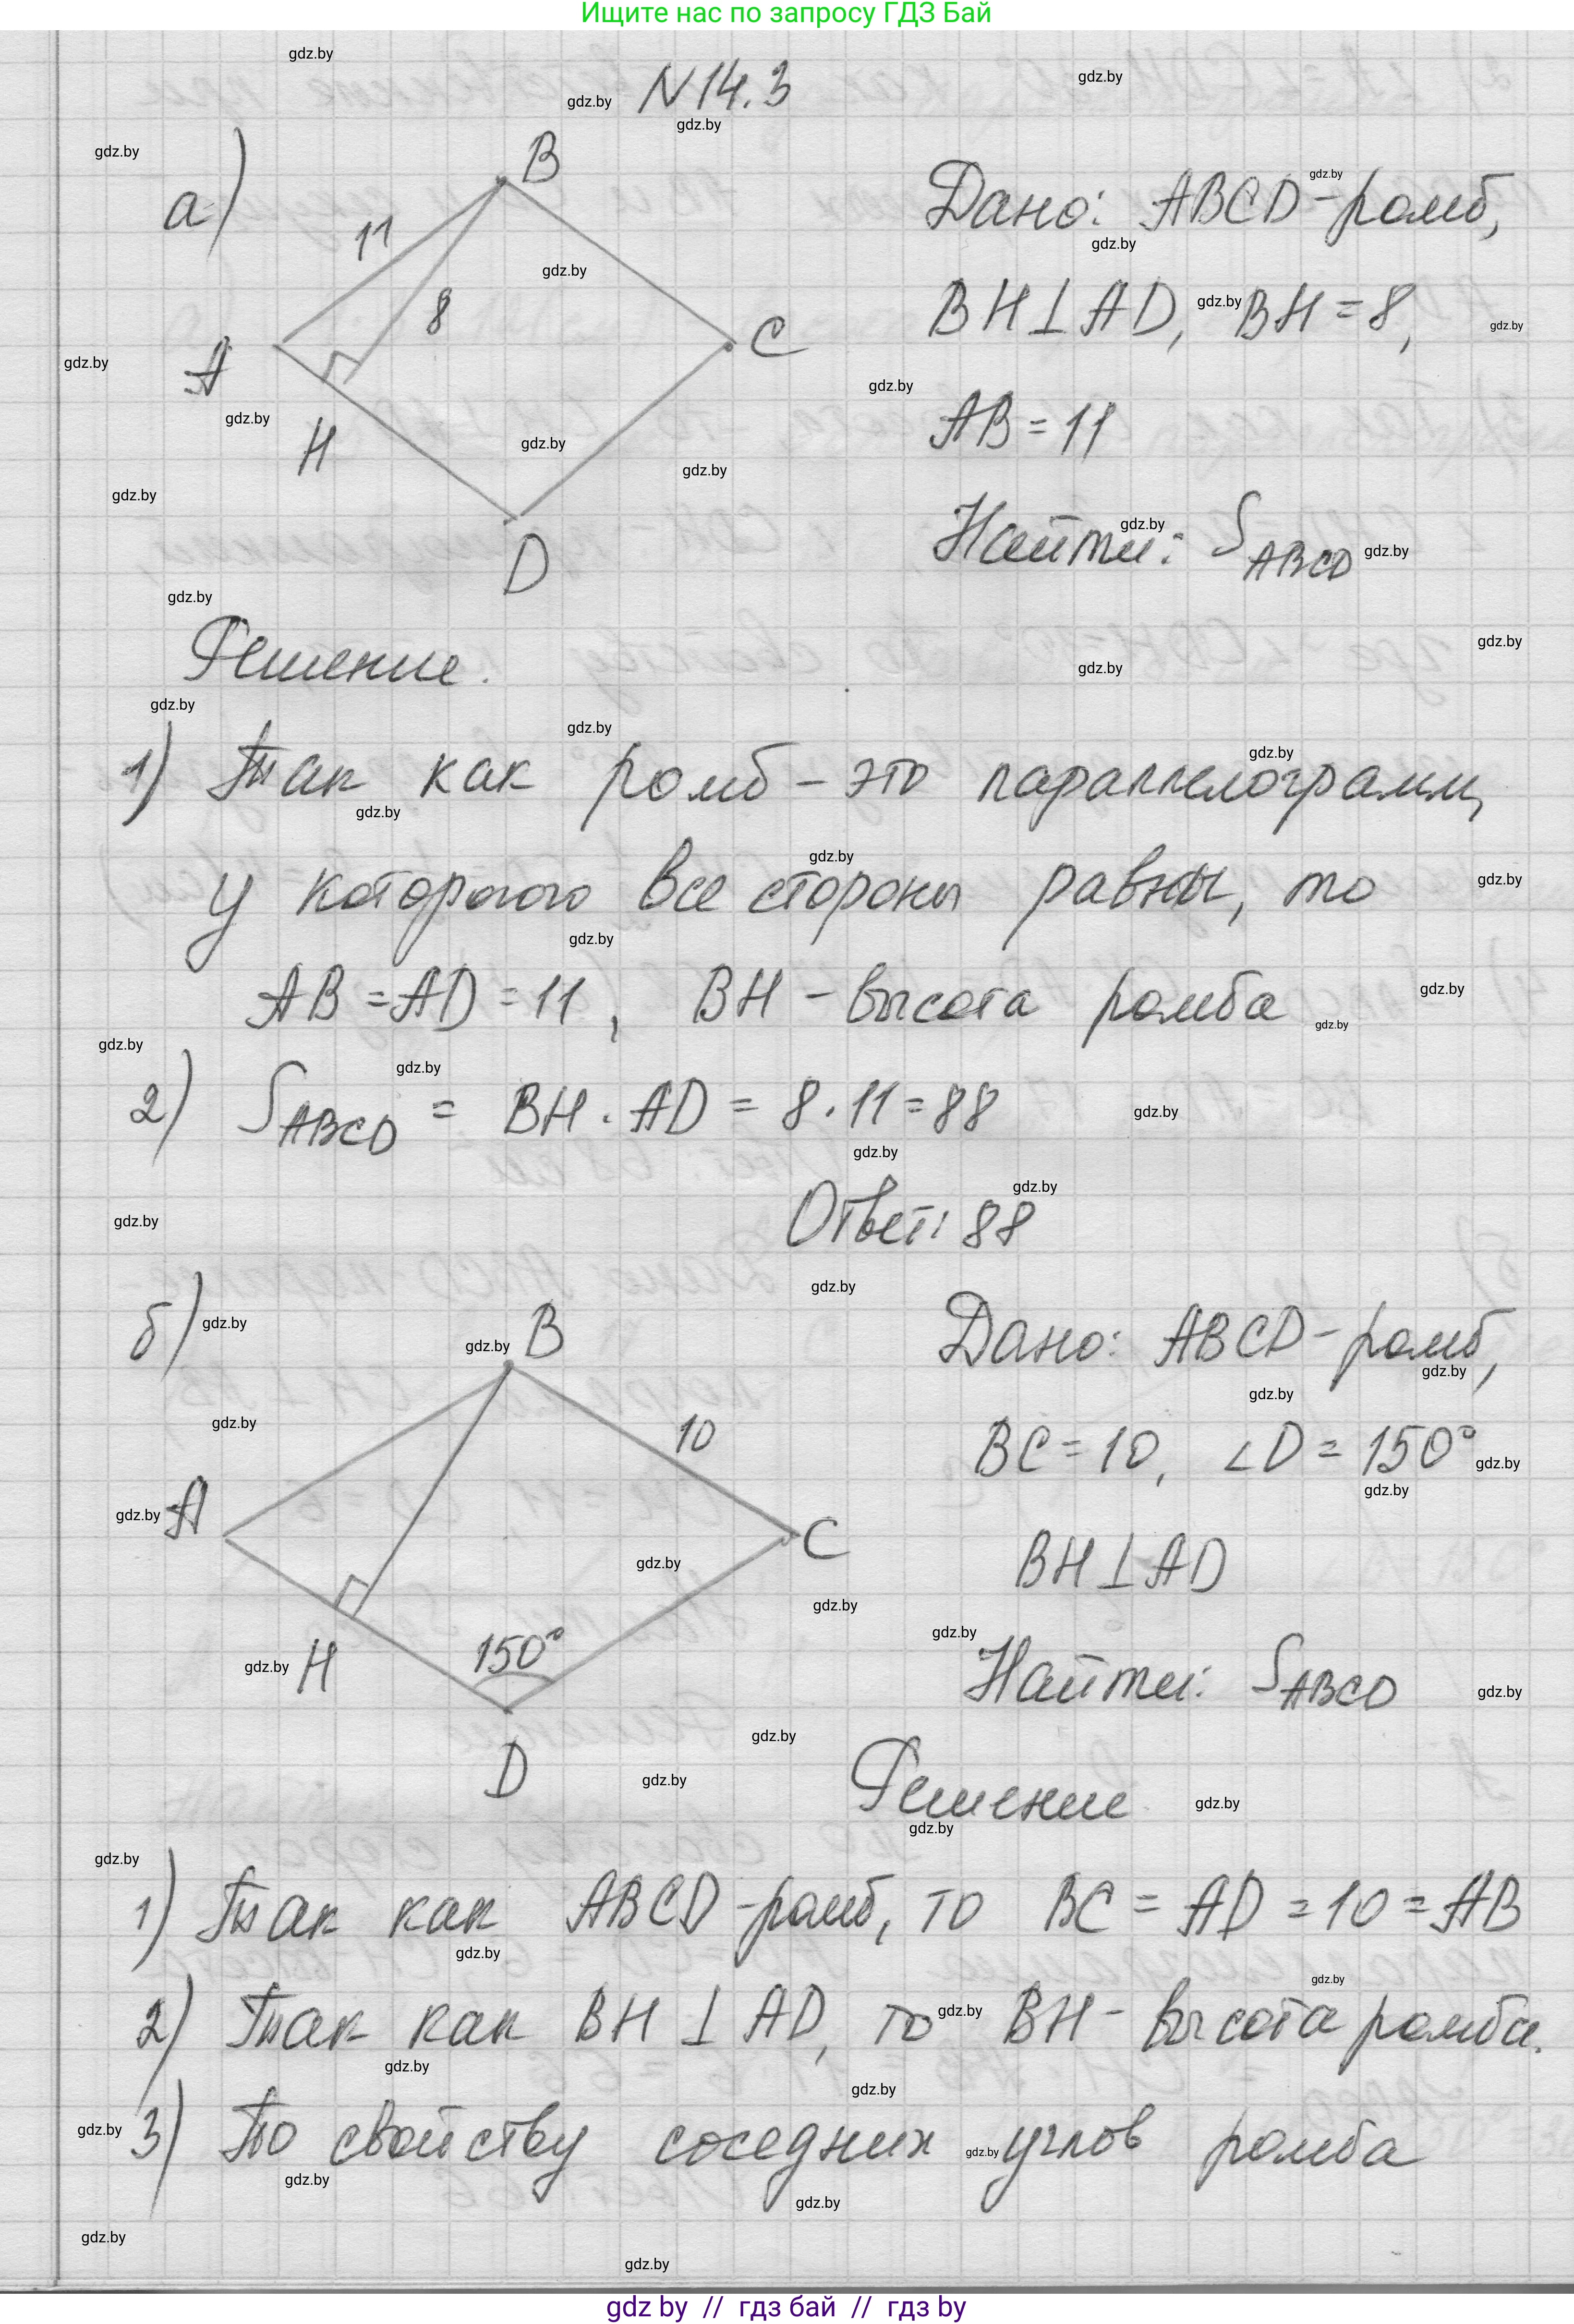 Ищите нас по запросу ГДЗ Бай
N14.3
а)
B
11
8
A
C
H
D
Дано: ABCD-ромб,
BH⊥AD, BH=8,
AB=11
Найти: S ABCD
Решение.
1) Так как ромб - это параллелограмм,
у которого все стороны равны, то
AB=AD=11, BH - высота ромба
2) S ABCD = BH · AD = 8 · 11 = 88
Ответ: 88
б)
B
10
A
C
H
150°
D
Дано: ABCD-ромб,
BC=10, ∠D=150°
BH⊥AD
Найти: S ABCD
Решение
1) Так как ABCD-ромб, то BC=AD=10=AB
2) Так как BH⊥AD, то BH- высота ромба.
3) По свойству соседних углов ромба
gdz by // гдз бай // гдз by